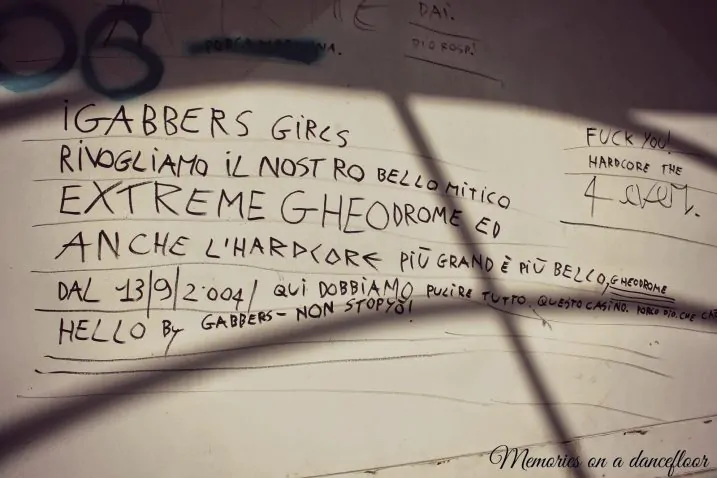 06
DAI.
DIO ROSP!
iGABBERS GiRLS
RiVOGLiAMO iL NOSTRO BELLO MiTiCO
EXTREME GHEODROME ED
ANCHE L'HARDCORE PiÙ GRAND È PiÙ BELLO, GHEODROME
DAL 13/9/2004/ QUi DOBBiAMO PULiRE TUTTO. QUESTO CASiNO. PORCO DiO. CHE
HELLO By GABBERS - NON STOP
FUCK YOU!
HARDCORE THE
4 ever.
Memories on a dancefloor